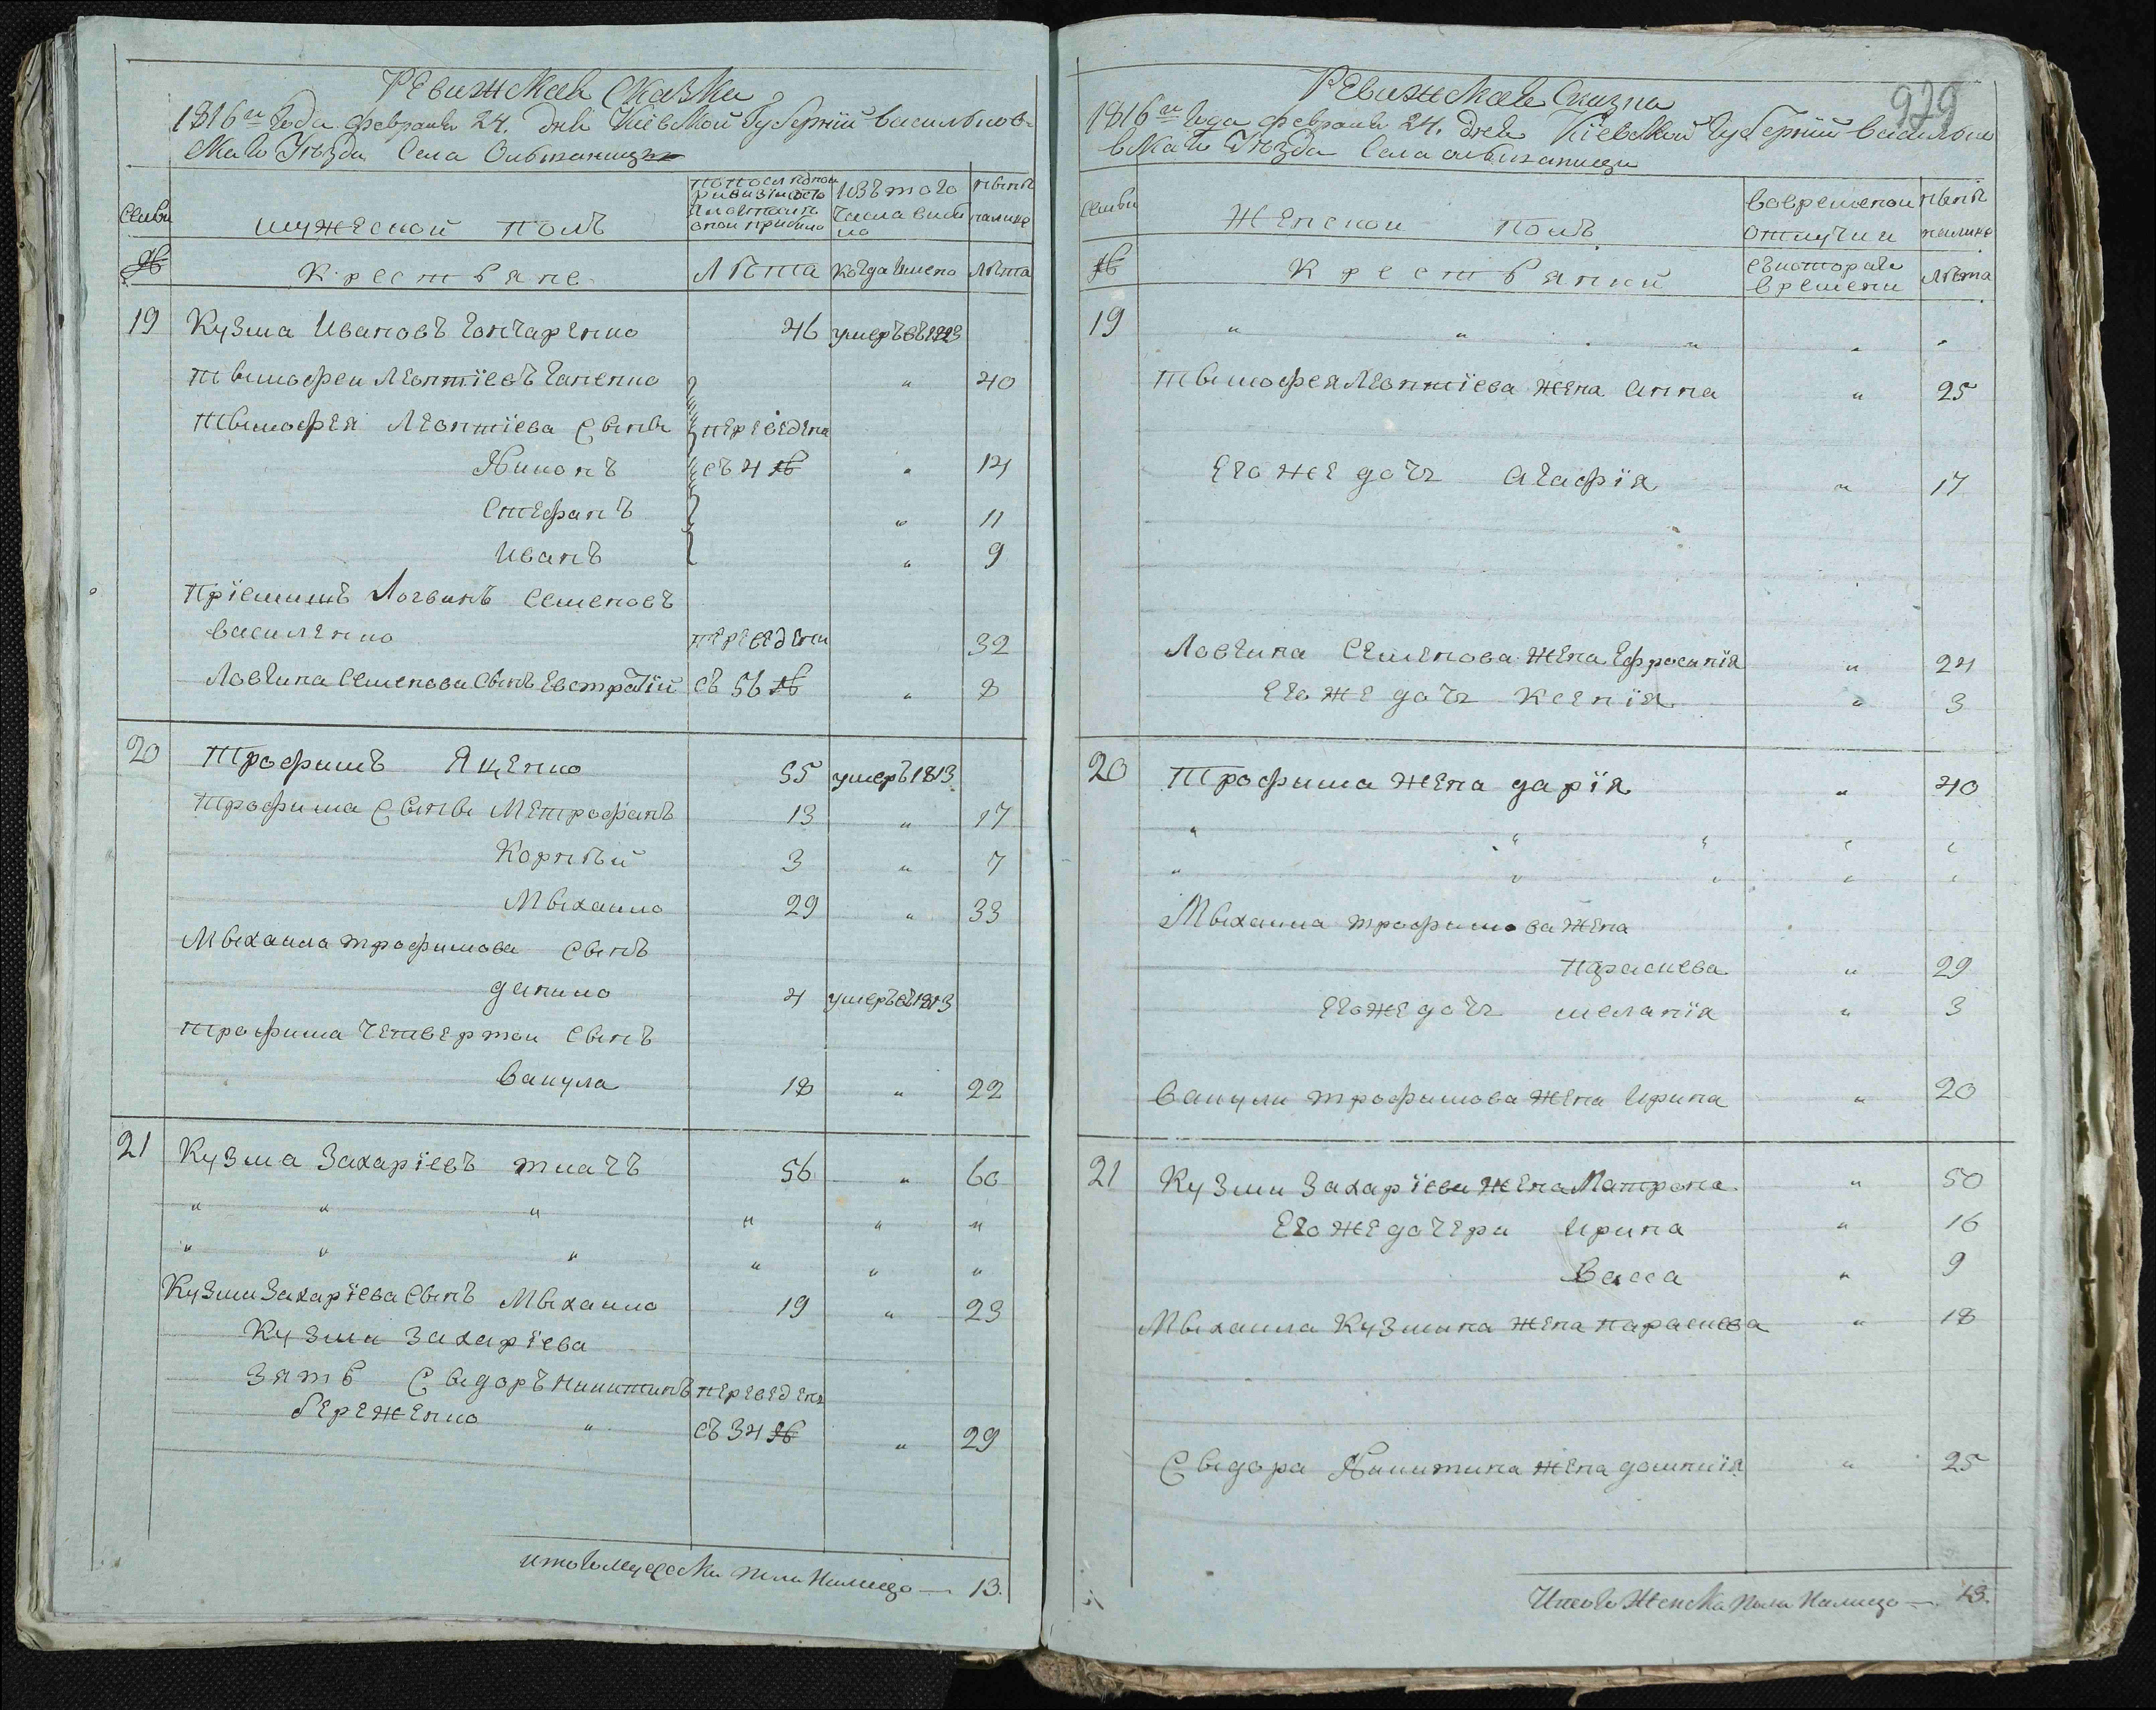 Ревижская Сказка
1816го Года февраля 24. дня Кіевской Губерніи васильков
скаго Уезда Села Ольшаницы
Семьи
№
мужескои полъ
Крестьяне
Лѣта
изътого
числа выбы
ло
когда имено
нынѣ
налице
Лѣта
19 Кузма Ивановъ Гончаренко 46 умеръвъ1813
тымофеи Леонтіевъ Гапенко " 40
тымофея Леонтіева Сыны переведена
Яиконъ съ 4 № " 14
Стефанъ " 11
Иванъ " 9
Пріемишъ Логвинъ Семеновъ
василенко переведени 32
Ловгина Семенова Сынъ Евстратій съ 56 № " 8
20 Трофимъ Яценко 55 умеръ1813
Трофима Сыны Метрофанъ 13 " 17
Корнѣй 3 " 7
Мыхаило 29 " 33
Мыхаила трофимова Сынъ
данило 4 умеръвъ1813
трофима четвертои Сынъ
Вакула 18 " 22
21 Кузма Захаріевъ ткачъ 56 " 60
" " " " " "
" " " " " "
Кузми Захаріева Сынъ Мыхаило 19 " 23
Кузми Захаріева
зять Сыдоръ никитинъ переведенъ
береженко " съ 34 № " 29
итого мужеска пола налицо — 13.
929
Ревижская Сказка
1816го Года февраля 24. дня Кіевской Губерніи василько
вскаго Уезда Села ольшаници
Семьи
№
Женскои полъ
Крестьянки
вовременои
отлучки
съкотораго
времени
нынѣ
налице
Лѣта
19 " " " " "
тымофея Леонтіева жена Анна " 25
Его же дочь Агафія " 17
Ловгина Семенова жена Ефросинія " 24
Его же дочь Ксенія " 3
20 Трофима жена дарія " 40
" " " " "
" " " " "
Мыхаила трофимова жена
Параскева " 29
Его же дочь меланія " 3
Вакули трофимова жена Ирина " 20
21 Кузми Захаріева жена Матрона " 50
Его же дочери Ирина " 16
Васса " 9
Мыхаила Кузмина жена параскева " 18
Сыдора Никитина жена домникія " 25
Итого женска пола налицо — 13.